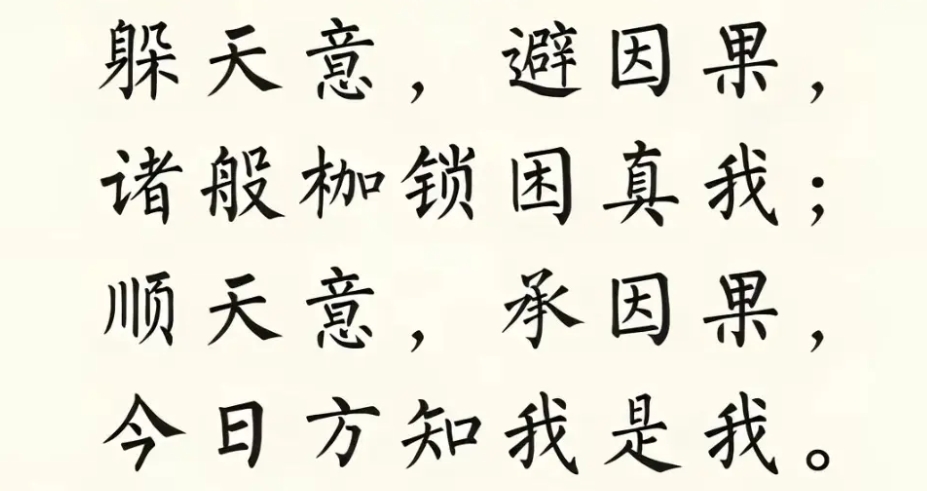 躲天意，避因果，
诸般枷锁困真我；
顺天意，承因果，
今日方知我是我。